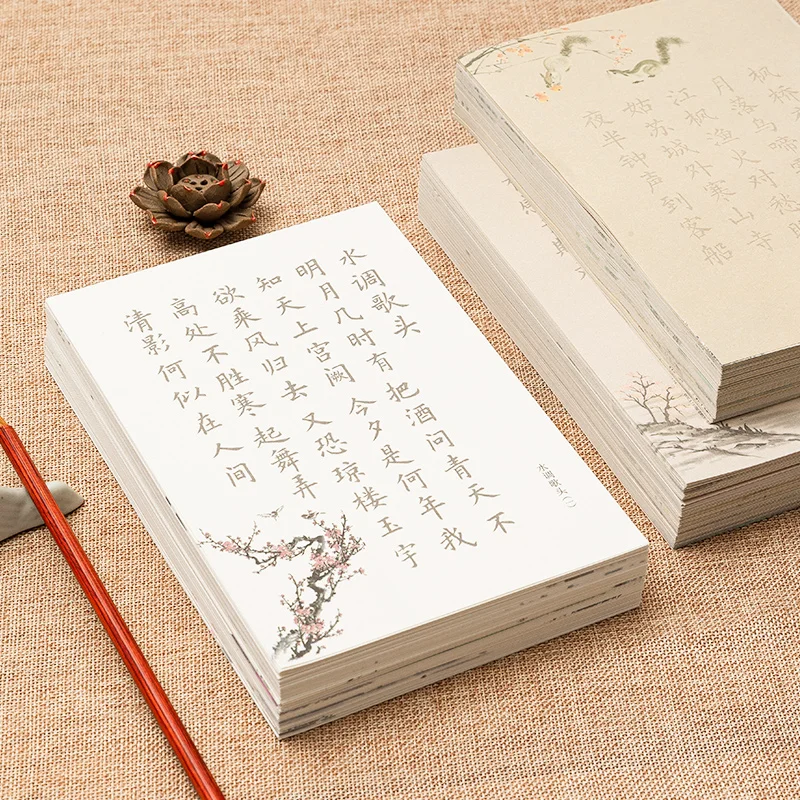 水调歌头
明月几时有把酒问青天不
知天上宫阙今夕是何年我
欲乘风归去又恐琼楼玉宇
高处不胜寒起舞弄
清影何似在人间
水调歌头(一)
枫桥
月落乌啼
江枫渔火对愁眠
姑苏城外寒山寺
夜半钟声到客船